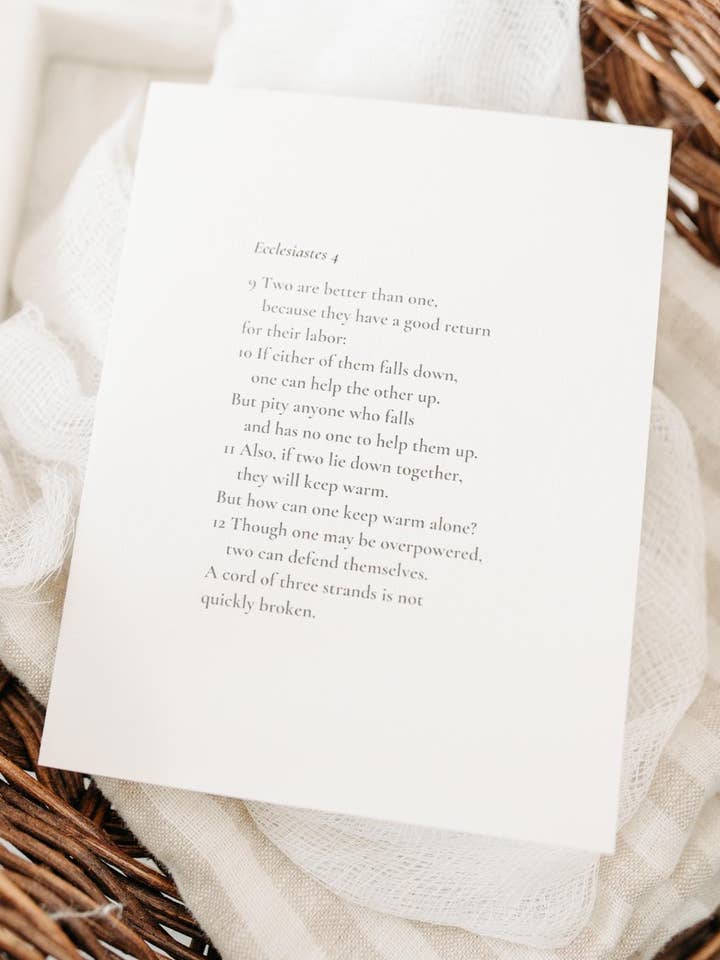 Ecclesiastes 4
9 Two are better than one,
because they have a good return
for their labor:
10 If either of them falls down,
one can help the other up.
But pity anyone who falls
and has no one to help them up.
11 Also, if two lie down together,
they will keep warm.
But how can one keep warm alone?
12 Though one may be overpowered,
two can defend themselves.
A cord of three strands is not
quickly broken.